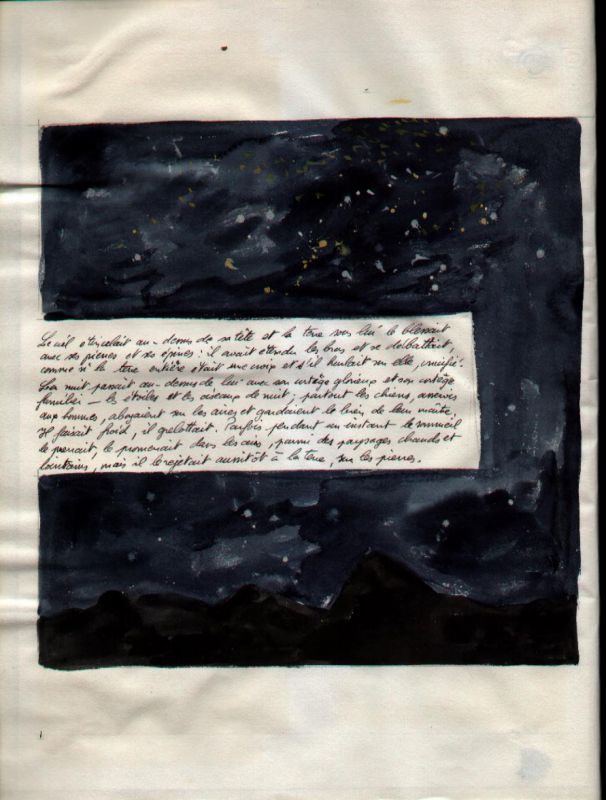 Le ciel étincelait au-dessus de sa tête et la terre sous lui le blessait
avec ses pierres et ses épines : il avait étendu les bras et se débattait,
comme si la terre entière était une croix et s'il hurlait sur elle, crucifié.
La nuit passait au-dessus de lui avec son cortège glorieux et son cortège
familier — les étoiles et les oiseaux de nuit ; partout les chiens, asservis
aux hommes, aboyaient sur les aires et gardaient le bien de leur maître.
Il faisait froid, il grelottait. Parfois pendant un instant le sommeil
le prenait, le promenait dans les airs, parmi des paysages chauds et
lointains, mais il le rejetait aussitôt à la terre, sur les pierres.